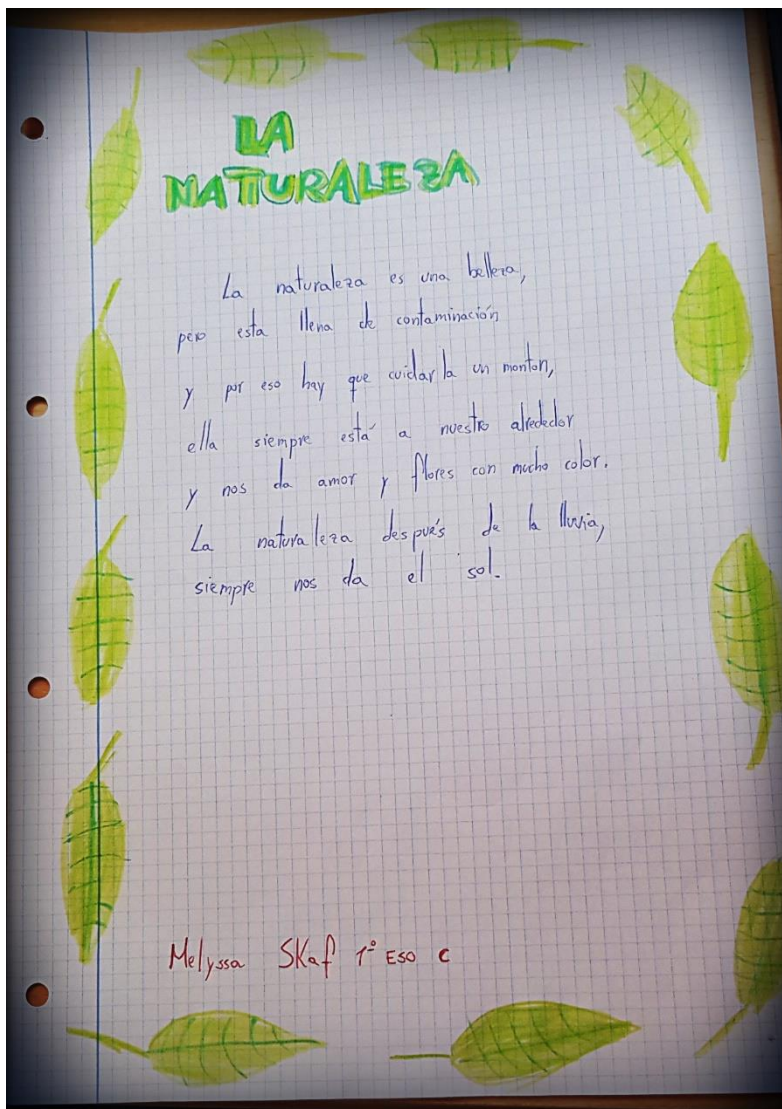 LA
NATURALEZA
La naturaleza es una belleza,
pero esta llena de contaminación
y por eso hay que cuidarla un monton,
ella siempre está a nuestro alrededor
y nos da amor y flores con mucho color.
La naturaleza después de la lluvia,
siempre nos da el sol.
Melyssa SKaf 1º ESO C